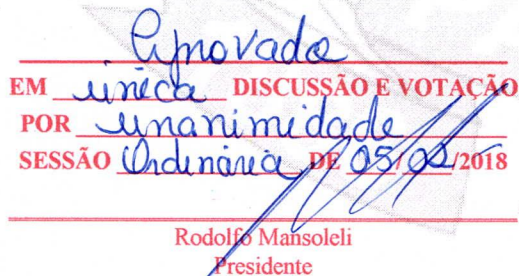 Aprovada
EM única DISCUSSÃO E VOTAÇÃO
POR unanimidade
SESSÃO Ordinária DE 05/02/2018
Rodolfo Mansoleli
Presidente